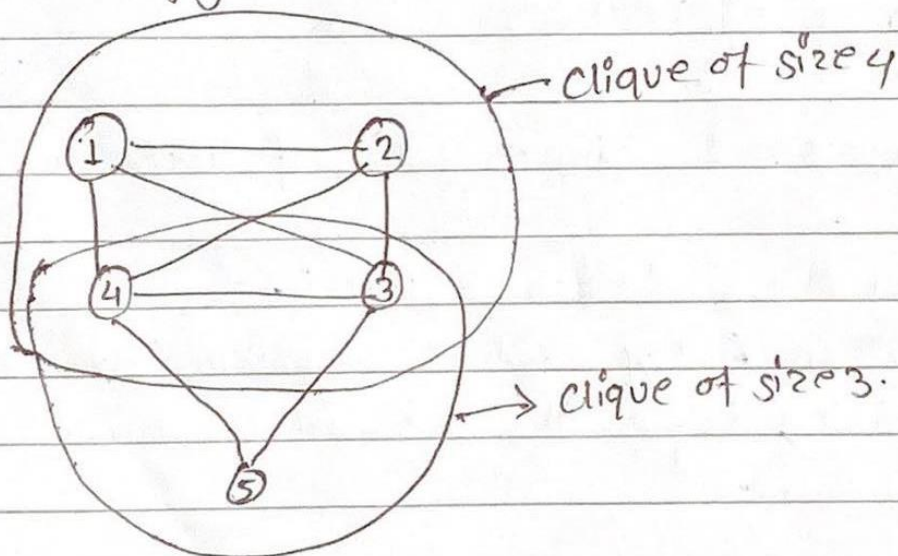 clique of size 4
1 2
4 3
clique of size 3.
5